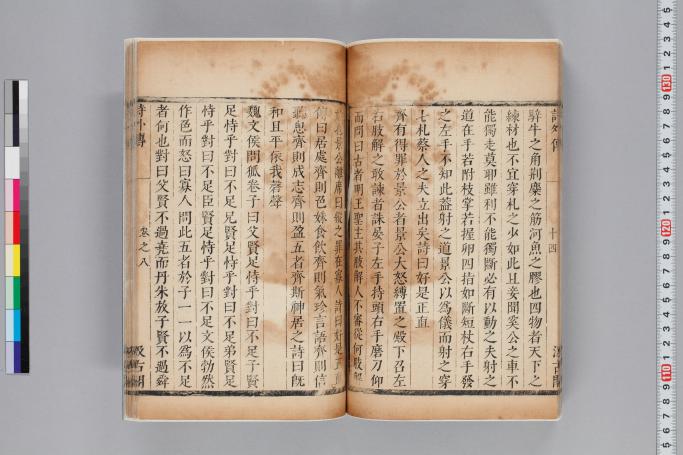 詩外傳 十四 汲古閣
騂牛之角荆麋之筋河魚之膠也四物者天下之
練材也不宜穿札之少如此且妾聞奚公之車不
能獨走莫耶雖利不能獨斷必有以動之夫射之
道在手若附枝掌若握卵四指如斷短杖右手發
之左手不知此蓋射之道景公以爲儀而射之穿
七札蔡人之夫立出矣詩曰好是正直
齊有得罪於景公者景公大怒縛置之殿下召左
右肢解之敢諫者誅晏子左手持頭右手磨刀仰
而問曰古者明王聖主其肢解人不審從何肢解
始也景公離席曰縱之罪在寡人詩曰好是正直
傳曰居處齊則色姝食飲齊則氣珍言語齊則信
聽思齊則成志齊則盈五者齊斯神居之詩曰旣
和且平依我磬聲
魏文侯問狐卷子曰父賢足恃乎對曰不足子賢
足恃乎對曰不足兄賢足恃乎對曰不足弟賢足
恃乎對曰不足臣賢足恃乎對曰不足文侯勃然
作色而怒曰寡人問此五者於子一一以爲不足
者何也對曰父賢不過堯而丹朱放子賢不過舜
詩外傳 卷之八 汲古閣